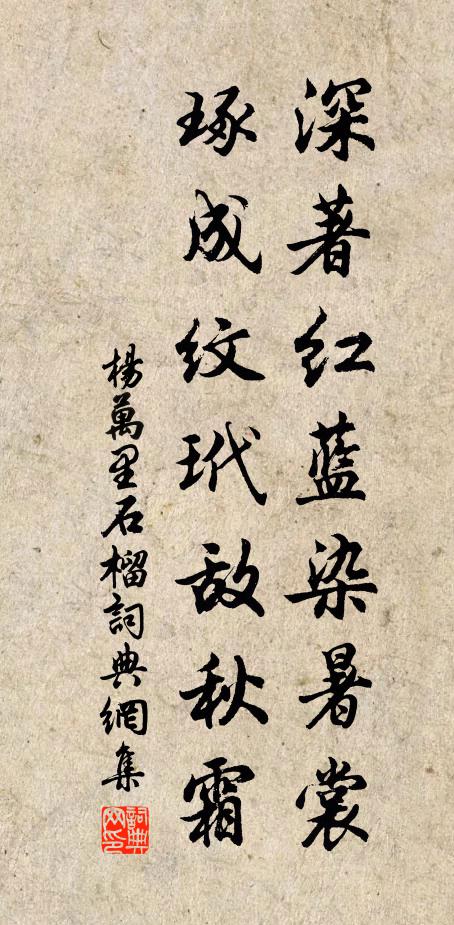 深著红蓝染暑裳
琢成纹玳敌秋霜
楊萬里石榴詞典網集
詞典网印